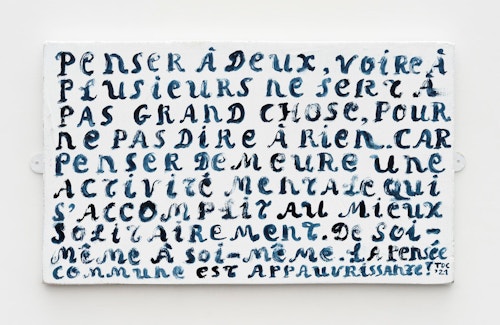 PENSER À DEUX, VOIRE À
PLUSIEURS NE SERT À
PAS GRAND CHOSE, POUR
NE PAS DIRE À RIEN. CAR
PENSER DEMEURE UNE
ACTIVITÉ MENTALE QUI
S'ACCOMPLIT AU MIEUX
SOLITAIREMENT. DE SOI-
MÊME À SOI-MÊME. LA PENSÉE
COMMUNE EST APPAUVRISSANTE! TOC
'21